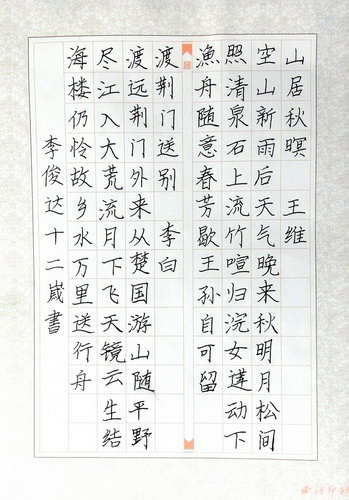 山居秋暝 王维
空山新雨后天气晚来秋明月松间
照清泉石上流竹喧归浣女莲动下
漁舟随意春芳歇王孙自可留
渡荆门送别 李白
渡远荆门外来从楚国游山随平野
尽江入大荒流月下飞天镜云生结
海楼仍怜故乡水万里送行舟
李俊达十二嵗書